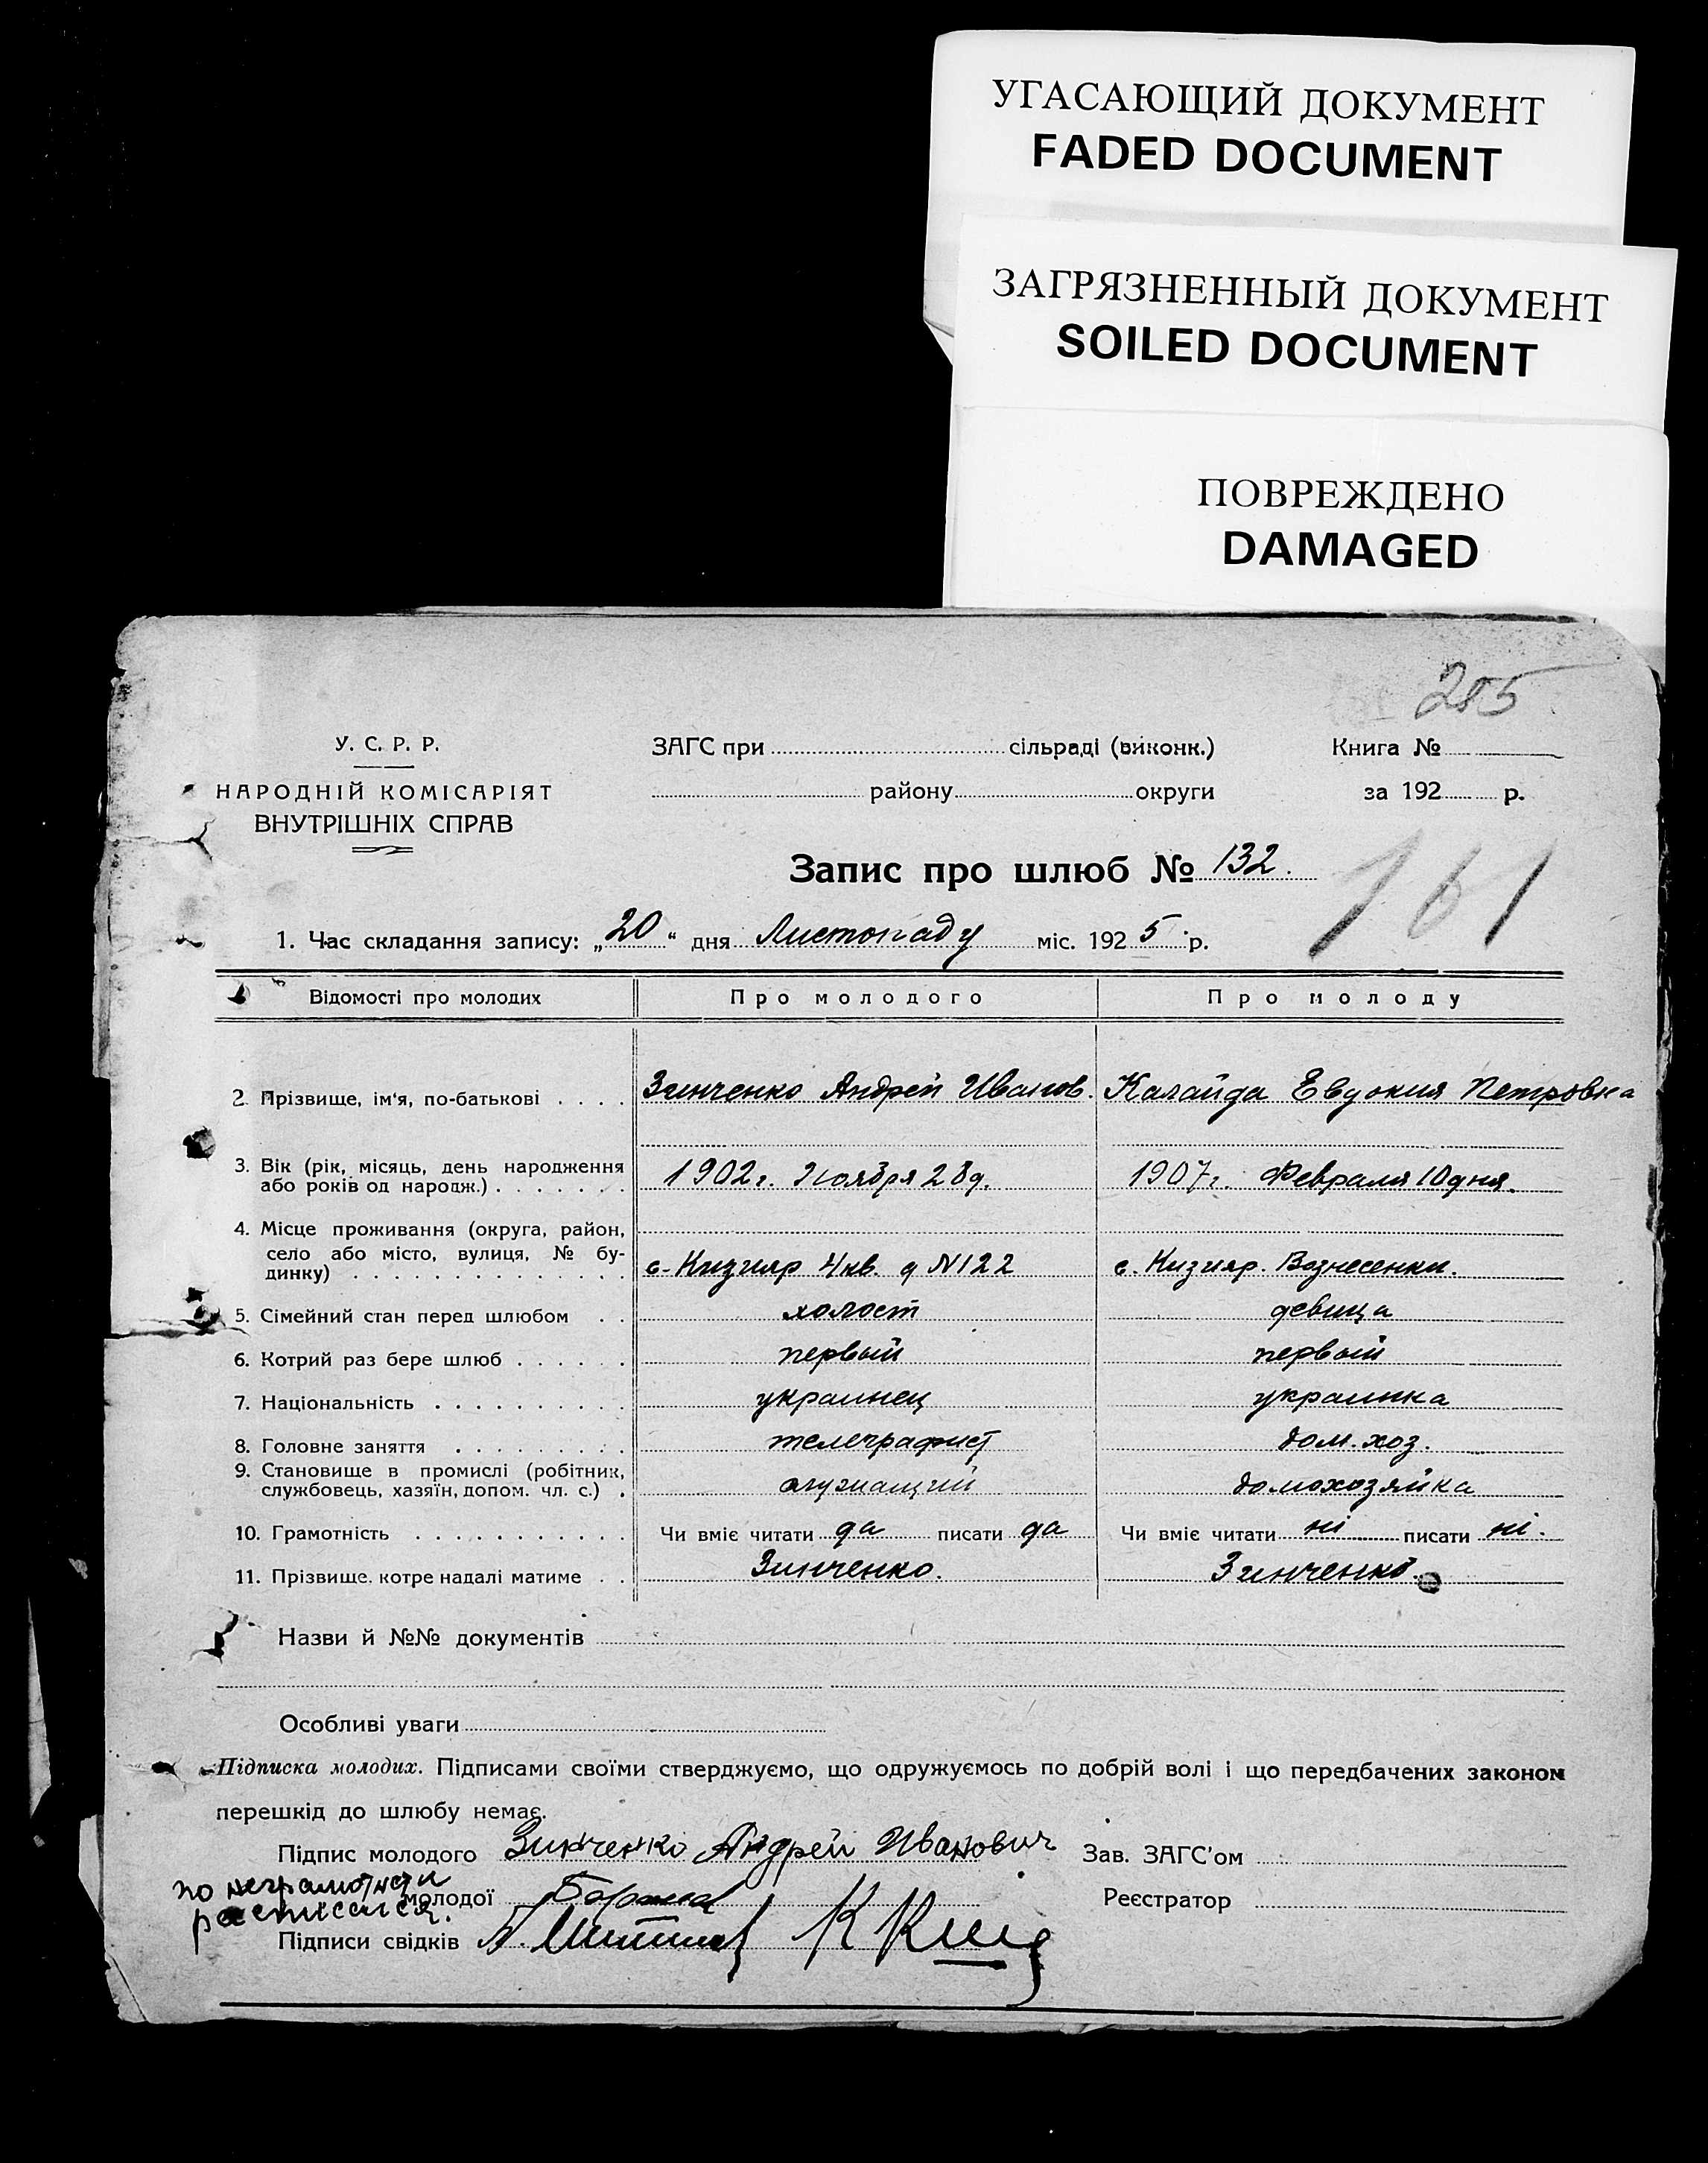 УГАСАЮЩИЙ ДОКУМЕНТ
FADED DOCUMENT
ЗАГРЯЗНЕННЫЙ ДОКУМЕНТ
SOILED DOCUMENT
ПОВРЕЖДЕНО
DAMAGED
285
У. С. Р. Р.
НАРОДНІЙ КОМІСАРІЯТ
ВНУТРІШНІХ СПРАВ
ЗАГС при сільраді (виконк.)
району округи
Книга №
за 192 р.
Запис про шлюб № 132.
161
1. Час складання запису: „20" дня Листопаду міс. 1925 р.
Відомості про молодих Про молодого Про молоду
2. Прізвище, ім'я, по-батькові . . . . Зинченко Андрей Иванов. Калайда Евдокия Петровка
3. Вік (рік, місяць, день народження
або років од народж.) . . . . . . . 1902 г. Ноября 28 д. 1907 г. Февраля 10 дня.
4. Місце проживання (округа, район,
село або місто, вулиця, № бу-
динку) . . . . . . . . . . . . . . с. Кизияр 4 кв. д N 122 с. Кизияр. Вознесенки.
5. Сімейний стан перед шлюбом . . холост девица
6. Котрий раз бере шлюб . . . . . . первый первый
7. Національність . . . . . . . . . . украинец украинка
8. Головне заняття . . . . . . . . . телеграфист дом. хоз.
9. Становище в промислі (робітник,
службовець, хазяїн, допом. чл. с.) . служащий домохозяйка
10. Грамотність . . . . . . . . . . . Чи вміє читати да писати да Чи вміє читати ні писати ні.
11. Прізвище. котре надалі матиме . . Зинченко. Зинченко.
Назви й №№ документів
Особливі уваги
Підписка молодих. Підписами своїми стверджуємо, що одружуємось по добрій волі і що передбачених законом
перешкід до шлюбу немає.
Підпис молодого Зинченко Андрей Иванович Зав. ЗАГС'ом
по неграмотности
молодої Реєстратор
расписался.
Підписи свідків